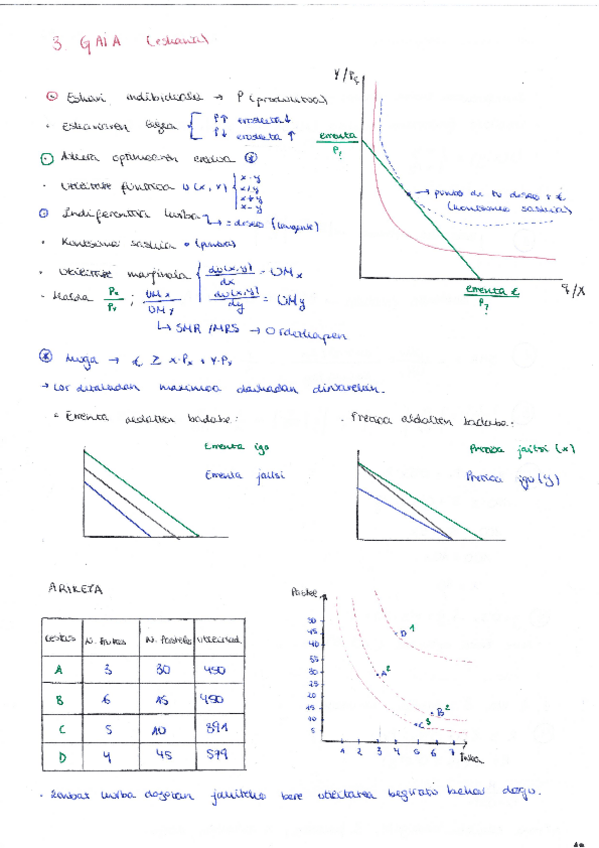 3. GAIA (eskaria)
Eskari indibiduala → P (produktua)
· Eskariaren legea { P↑ erosketa↓
P↓ erosketa ↑
Aukera optimoaren eredua
· Utilitate funtzioa U(x, y) { x·y
x/y
x+y
x-y
Indiferentzia kurba → = deseo (tangente)
· Kontsumo saskia • (puntua)
· Utilitate marginala { du(x,y)/dx = UMx
du(x,y)/dy = UMy
· Malda Px/Py ; UMx/UMy
↳ SMR/MRS → Ordezkapen
Y/P
errenta
P
puntos de tu deseo y €
(kontsumo saskia)
errenta €
P
X
Muga → € ≥ x·Px + Y·Py
→ Lor dezakedan maximoa daukadan diruarekin.
Errenta aldatzen badabe:
Errenta igo
Errenta jaitsi
· Prezioa aldatzen badabe:
Prezioa jaitsi (x)
Prezioa igo (y)
ARIKETA
N. Frutas N. Pasteles Utilidad
A 3 30 450
B 6 15 450
C 5 10 391
D 4 45 579
Pastel
50
45
40
35
30
25
20
15
10
5
1 2 3 4 5 6 7
D 1
A 2
B 2
C 3
· Zenbat kurba dagozan jakiteko bere utilitatea begiratu behar dogu.